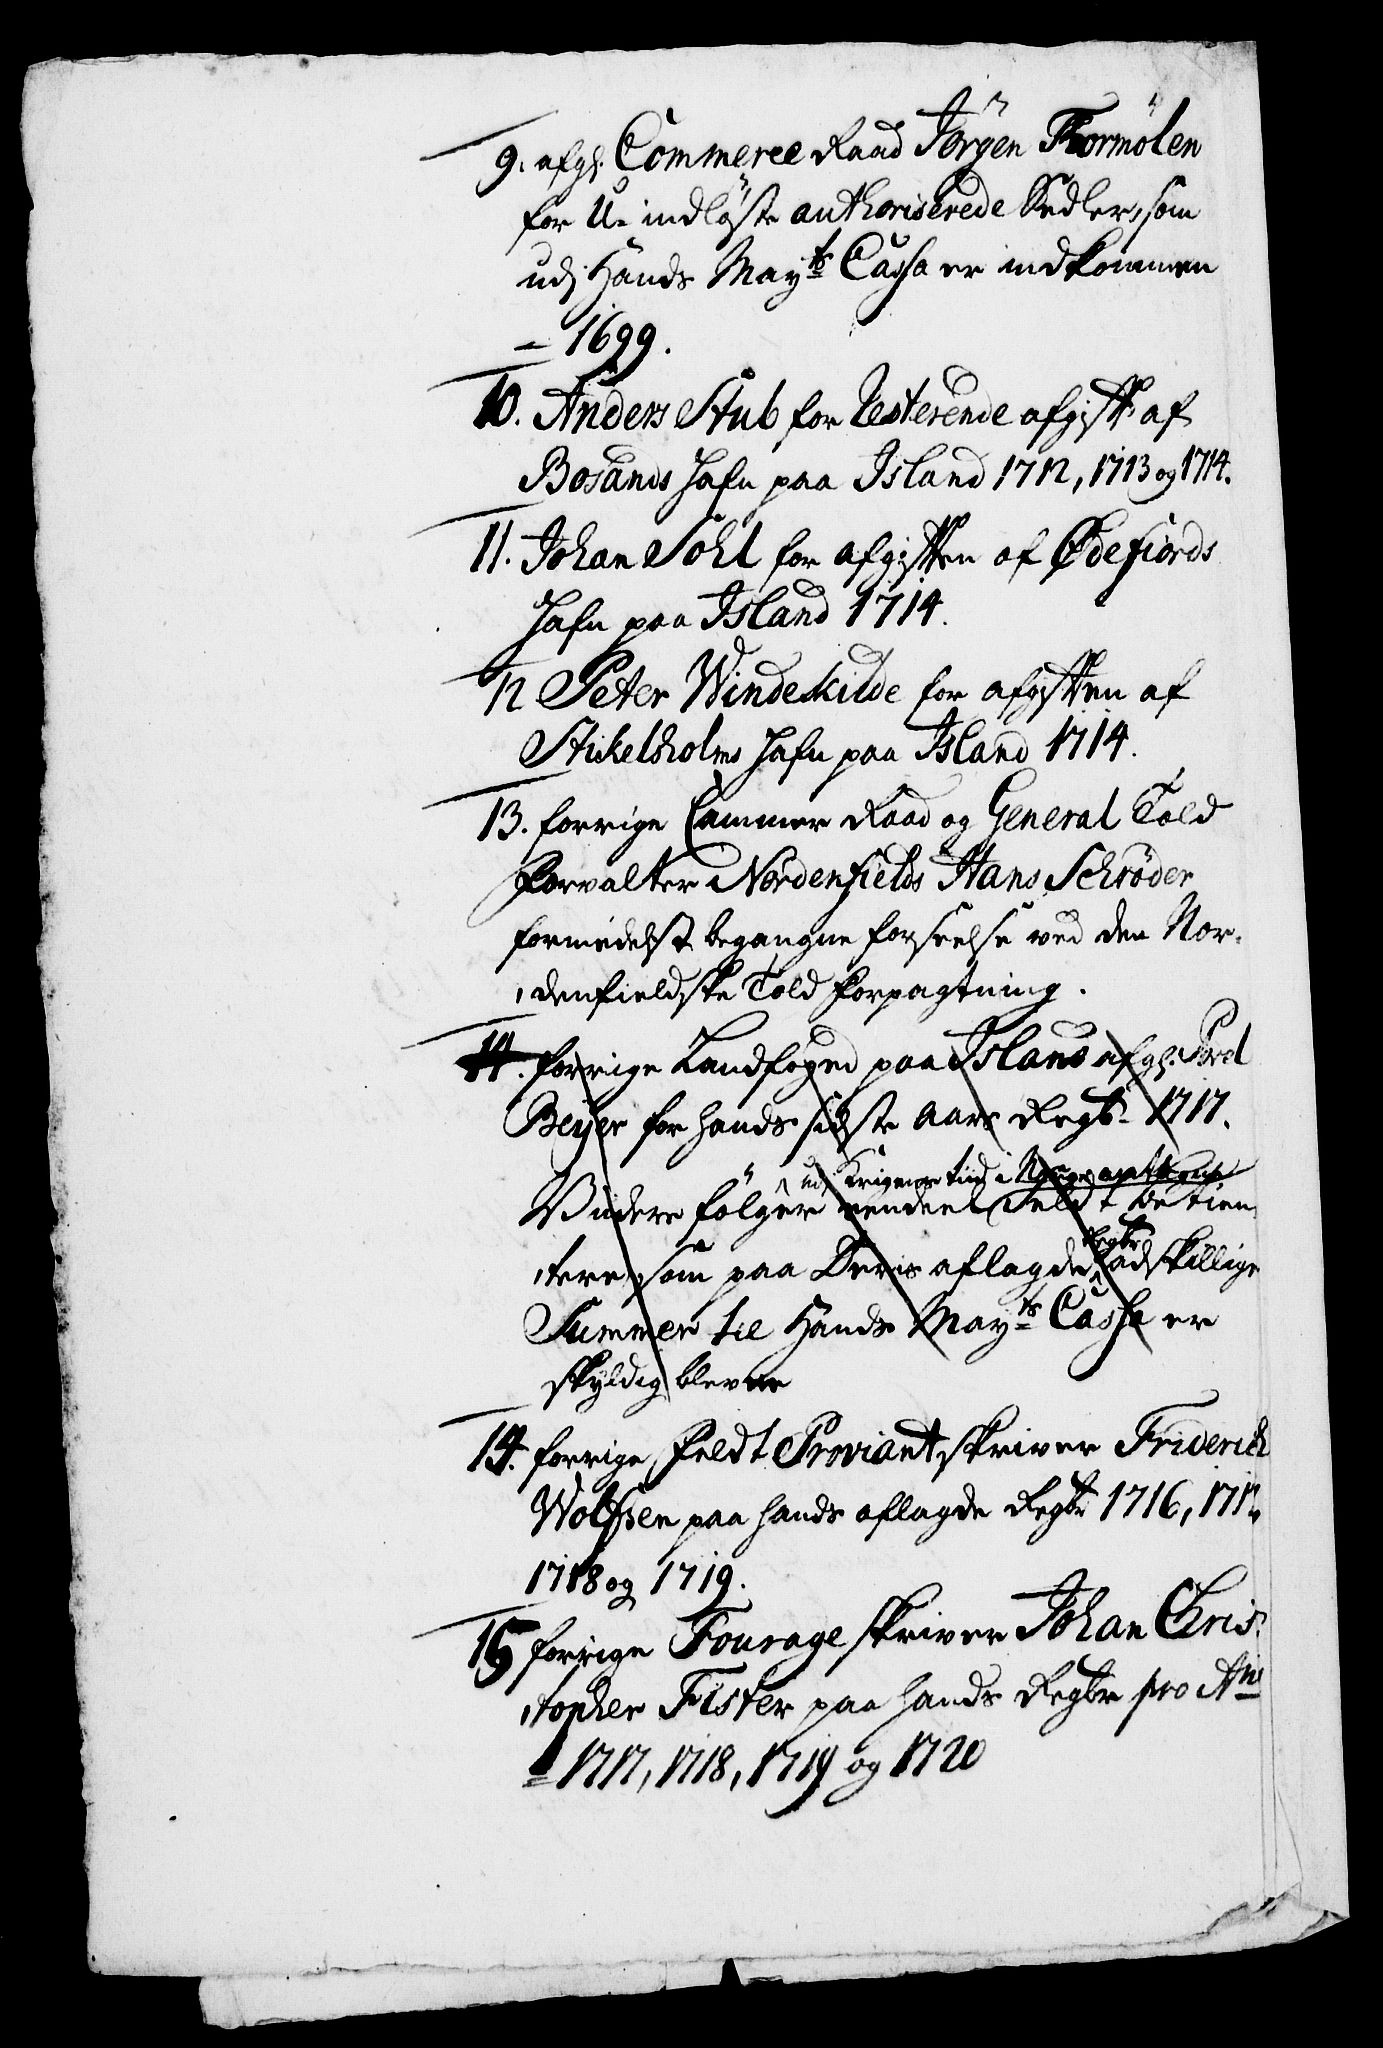 9. afg: Commerce Raad Jörgen Thormölen
for U-indlöste authoriserede Sedler, som
udj Hands Mayts Cassa er indkommen
– 1699.
10. Anders Stub for Resterende afgift af
Bosands Hafn paa Island 1712, 1713 og 1714.
11. Johan Sohl for afgiften af Ødefiords
Hafn paa Island 1714.
12 Peter Windekilde for afgiften af
Stikelsholms Hafn paa Island 1714.
13. forrige Cammer Raad og General Told
Forvalter Nordenfields Hans Schröder
formedelst begangne forseelse ved den Nor-
denfieldske Told Forpagtning.
14. forrige Landfoged paa Island afg: Povel
Beyer for hands sidste Aars Regb: 1717.
udj Krigens tiid i Norge
Videre fölger eendeel Feldt betien-
Regbr
tere, som paa Deris aflagde adskillige
Summer til Hands Mayts Cassa er
skyldig blevne
14. forrige Feldt Proviantskriver Friderich
Wolfsen paa hands aflagde Regbr 1716, 1717,
1718 og 1719.
15 forrige Fourage skriver Johan Chris-
topher Fister paa hands Regbr pro Ao
1717, 1718, 1719 og 1720